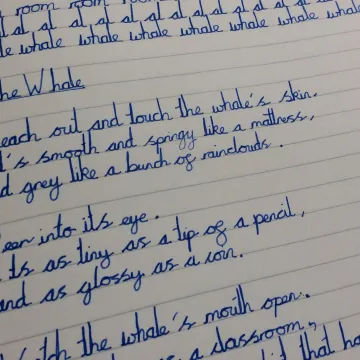 room room
al al al al al al al al al al
whale whale whale whale whale whale
he Whale
each out and touch the whale's skin.
's smooth and springy like a mattress,
d grey like a bunch of rainclouds.
ear into its eye.
ts as tiny as a tip of a pencil,
and as glossy as a coin.
the whale's mouth open.
a classroom,
that ha